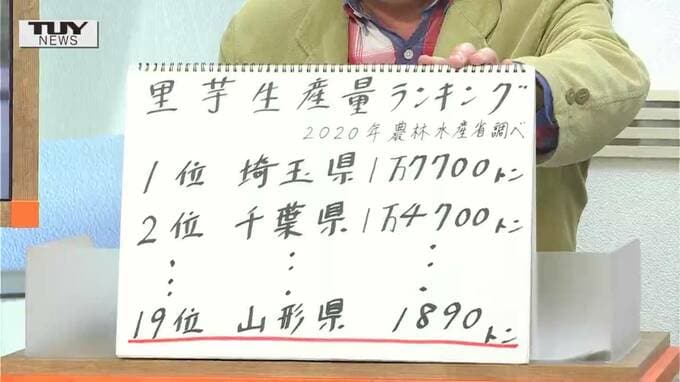 TUY
NEWS
里芋生産量ランキング
2020年農林水産省調べ
1位 埼玉県 1万7700トン
2位 千葉県 1万4700トン
⋮ ⋮ ⋮
19位 山形県 1890トン